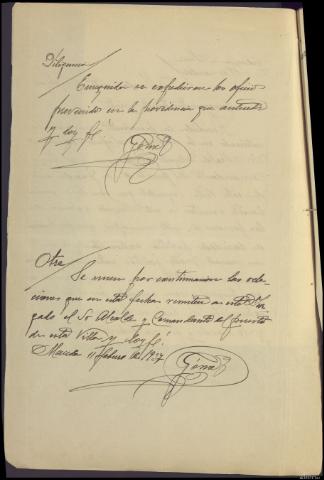 Diligencia
Enseguida se expidieron los oficios
prevenido en la providencia que antecede
y doy fé
Otra
Se unen por continuación las rela-
ciones que en esta fecha remiten a este Juz-
gado el Sr Alcalde y Comandante del puesto
de esta Villa y doy fé.
11 Febrero de 1937